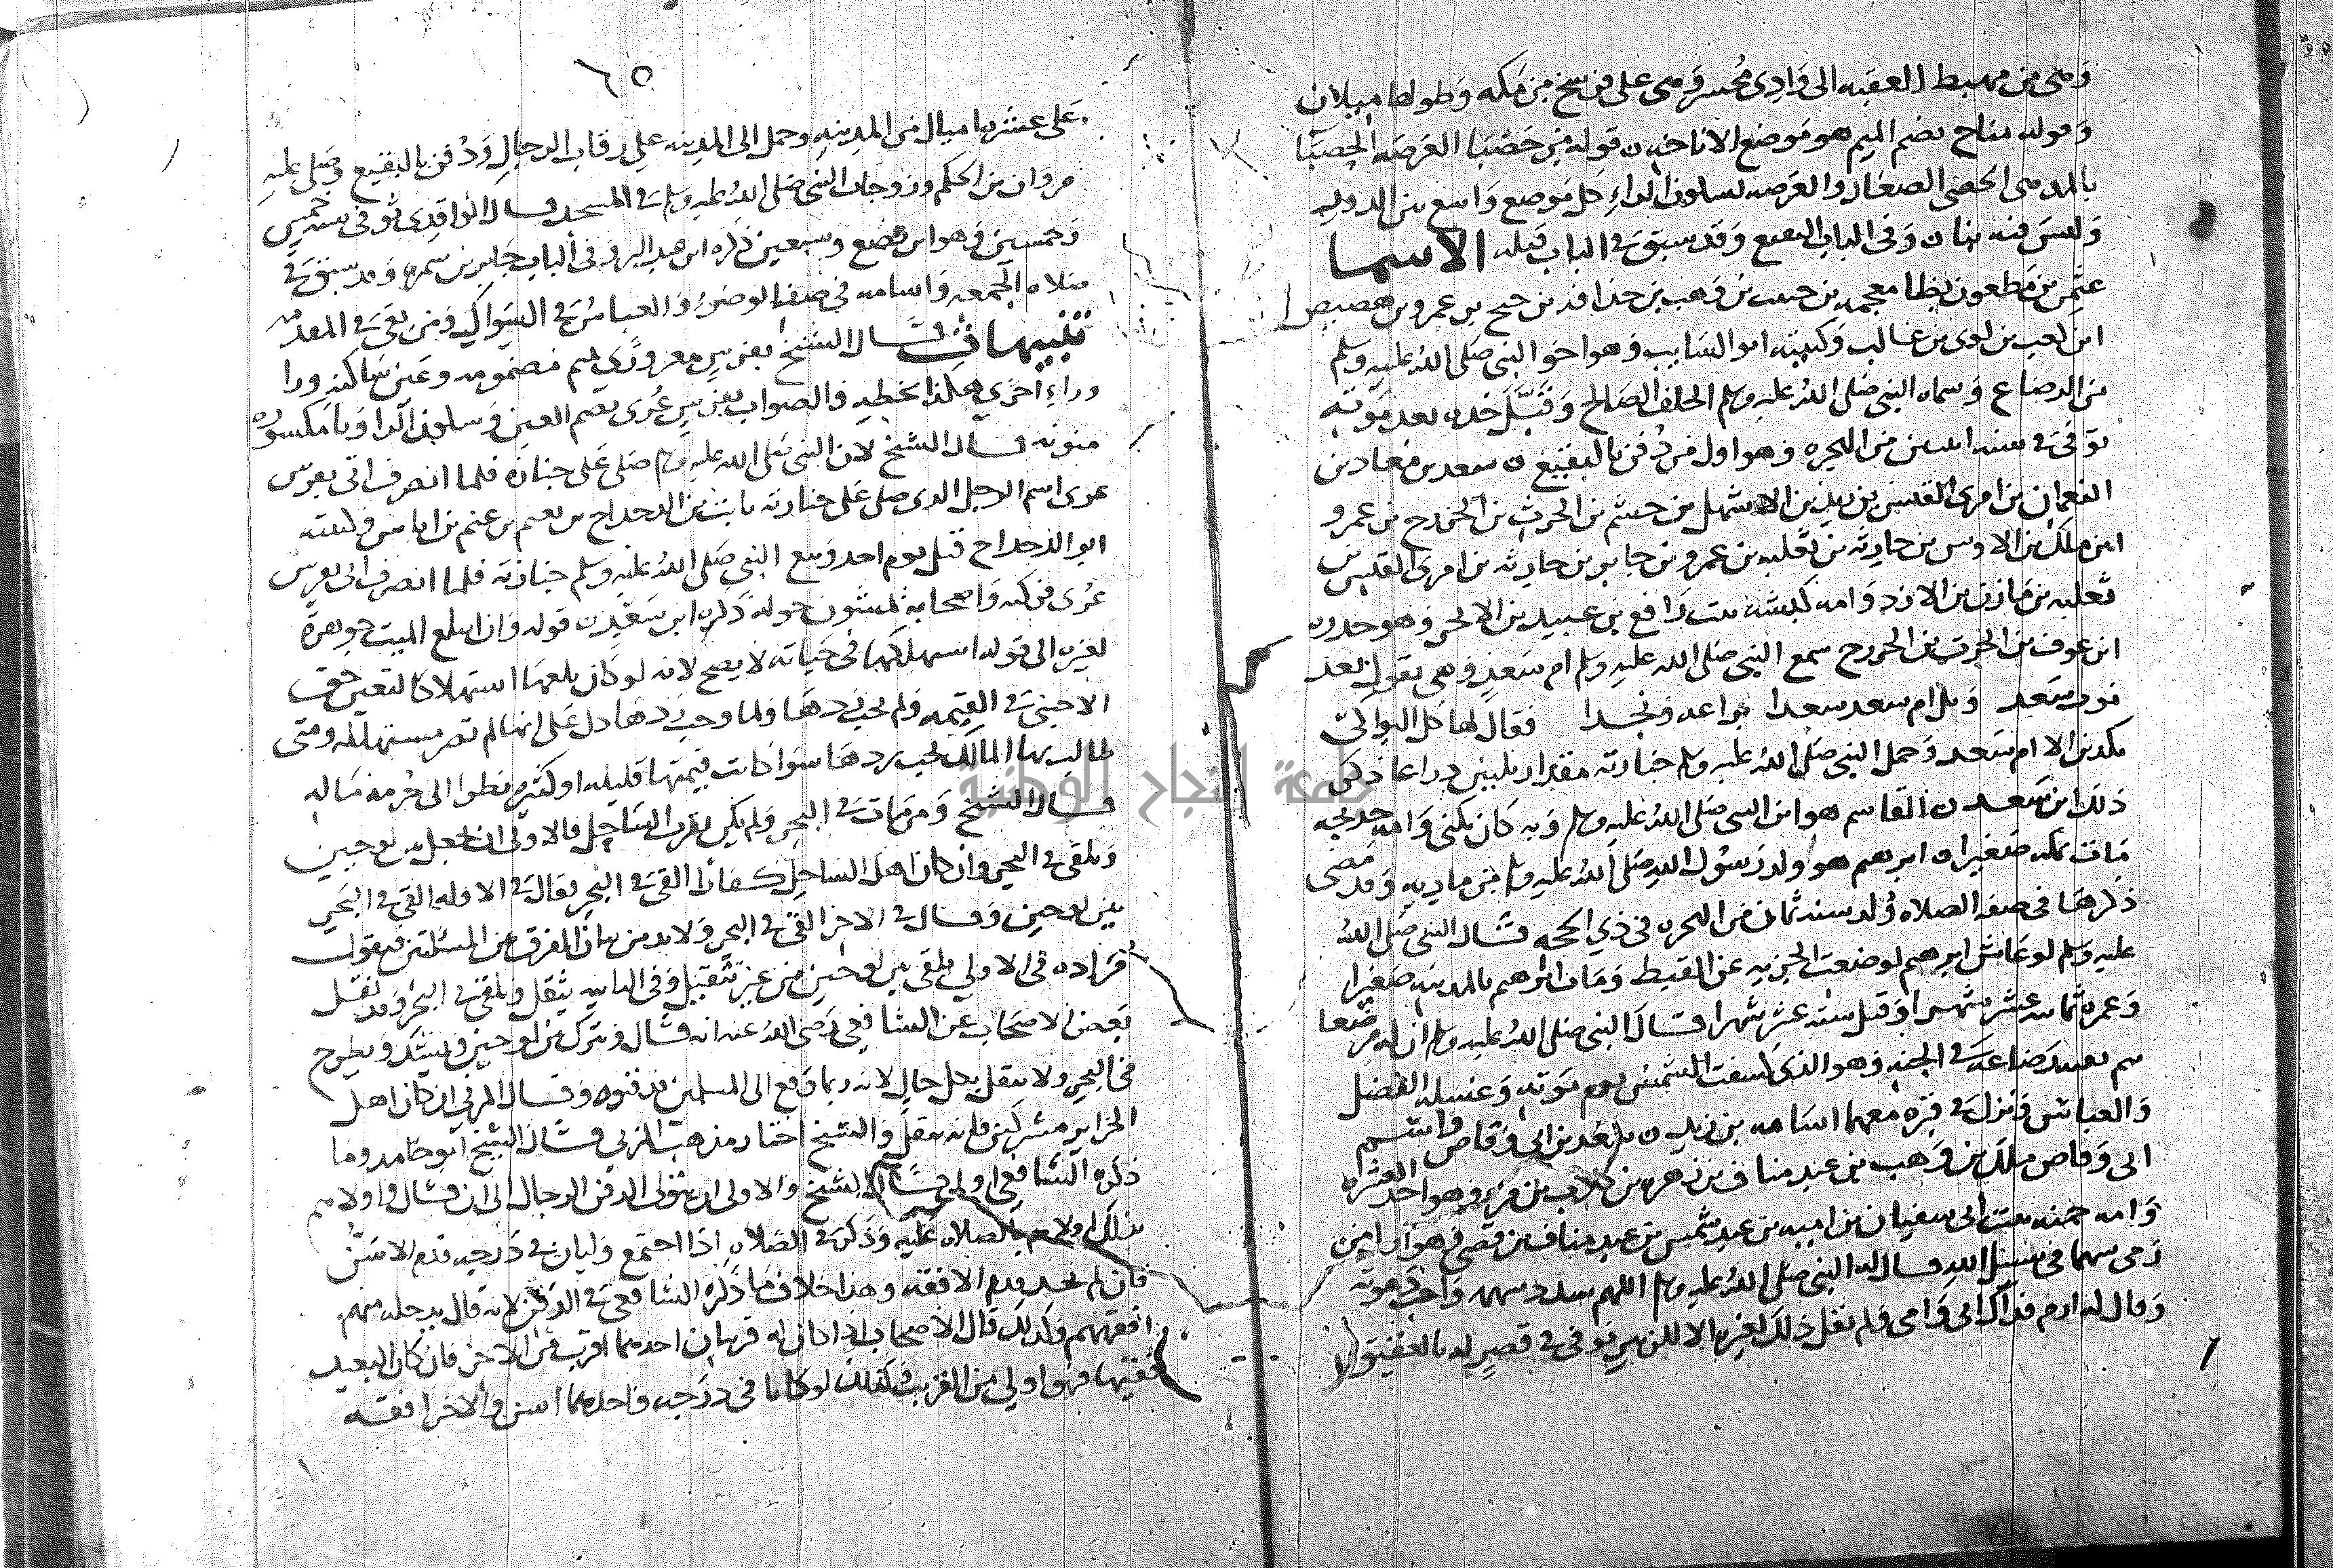 ومنى من مهبط العقبه الى وادى محسر ومنى على فرسخ من مكه وطولها ميلان
وقوله مناخ بضم الميم هو موضع الاناخه ن قوله من حصبا العرصه الحصبا
بالمد هى الحصى الصغار والعرصه بسكون الراء كل موضع واسع من الدور
وليس فيه بنا ن وفى الباب البقيع وقد سبق فى الباب قبله الاسما
عثمن بن مظعون بظا معجمه بن حبيب بن وهب بن حذافه بن جمح بن عمرو بن هصيص
ابن كعب بن لوى بن غالب وكنيته ابو السايب وهو اخو النبى صلى الله عليه وسلم
من الرضاع وسماه النبى صلى الله عليه وسلم السلف الصالح وقبل خده بعد موته
توفى فى سنه اثنين من الهجره وهو اول من دفن بالبقيع ن سعد بن معاذ بن
النعمان بن امرى القيس بن زيد بن الاشهل بن جشم بن الحرث بن الخزرج بن عمرو
ابن ملك بن الاوس بن حارثه بن ثعلبه بن عمرو بن جابر بن حارثه بن امرى القيس بن
ثعلبه بن مازن بن الازد وامه كبشه بنت رافع بن عبيد بن الابجر وهو خدره
ابن عوف بن الحرث بن الخزرج سمع النبى صلى الله عليه وسلم ام سعد وهى تقول بعد
موت سعد ويل ام سعد سعدا براعه ونجدا فقال لها كل البواكى
يكذبن الا ام سعد وحمل النبى صلى الله عليه وسلم جنازته مقدار ثلثين ذراعا ذكر
ذلك ابن سعد ن القاسم هو ابن النبى صلى الله عليه وسلم وبه كان يكنى وامه خديجه
مات بمكه صغيرا ن ابرهيم هو ولد رسول الله صلى الله عليه وسلم من ماريه وقد مضى
ذكرها فى صفه الصلاه ولد سنه ثمان من الهجره فى ذي الحجه قال النبى صلى الله
عليه وسلم لو عاش ابرهيم لوضعت الجزيه عن القبط ومات ابرهيم بالمدينه صغيرا
وعمره ثمانيه عشر شهرا وقيل سته عشر شهرا قال النبى صلى الله عليه وسلم ان له مرضعا
يتم بعد رضاعه فى الجنه وهو الذى كسفت الشمس يوم موته وغسله الفضل
والعباس ونزل فى قبره معهما اسامه بن زيد ن سعد بن ابى وقاص واسم
ابى وقاص ملك بن وهب بن عبد مناف بن زهره بن كلاب بن مره وهو احد العشره
وامه حمنه بنت ابى سفيان بن اميه بن عبد شمس بن عبد مناف بن قصى وهو اول من
رمى سهما فى سبيل الله قال له النبى صلى الله عليه وسلم اللهم سدد سهمه واجب دعوته
وقال له ارم فداك ابى وامى ولم يقل ذلك لغيره الا للزبير توفى فى قصر له بالعقيق
٦٥
على عشره اميال من المدينه وحمل الى المدينه على رقاب الرجال ودفن بالبقيع وصلى عليه
مروان بن الحكم وزوجات النبى صلى الله عليه وسلم فى المسجد قال الواقدى توفى سنه خمس
وخمسين وهو ابن بضع وسبعين ذكره ابن عبد البر وفى الباب جابر بن سمره وقد سبق فى
صلاه الجمعه واسامه فى صفه الوضوء والعباس فى السواك ومن بقى فى المقدمه
تنبيهات قال الشيخ بفرس معرورى لميم مضمومه وعين ساكنه ورا
وراء اخرى هكذا بخطه والصواب بفرس عرى بضم العين وسكون الرا ويا مكسوره
منونه قال الشيخ لان النبى صلى الله عليه وسلم صلى على جنازه فلما انصرف اتى بفرس
عرى اسم الرجل الذى صلى على جنازته ثابت بن الدحداح بن نعيم بن غنم بن اياس وكنيته
ابو الدحداح قتل يوم احد وتبع النبى صلى الله عليه وسلم جنازته فلما انصرف اتى بفرس
عرى فركبه واصحابه يمشون حوله ذكره ابن سعد ن قوله وان ابتلع الميت جوهرة
لغيره الى قوله استهلكها فى حياته لا يصح لانه لو كان بلعها استهلاكا لتعين حق
الاجنبى فى القيمه ولم يجب ردها ولما وجب ردها دل على انها لم تصر مستهلكه ومتى
طالب بها المالك يجب ردها سوا كانت قيمتها قليله او كثيره نظرا الى حرمه ماله
قال الشيخ ومن مات فى البحر ولم يكن بقرب الساحل فالاولى ان يجعل بين لوحين
ويلقى فى البحر وان كان اهل الساحل كفارا القى فى البحر فقال فى الاوله القى فى البحر
بين لوحين وقال فى الاخر القى فى البحر ولا بد من بيان الفرق بين المسئلتين فيقول
مراده فى الاولى يلقى بين لوحين من غير تثقيل وفى الثانيه يثقل ويلقى فى البحر وقد نقل
بعض الاصحاب عن الشافعى رضى الله عنه انه قال ويترك بين لوحين ويشد ويطرح
فى البحر ولا يثقل بكل حال لانه ربما وقع الى المسلمين فدفنوه وقال المزنى ان كان اهل
الجزاير مشركين فانه يثقل والشيخ اختار مذهب المزنى وقال الشيخ ابو حامد وما
ذكره الشافعى اولى قال الشيخ والاولى ان يتولى الدفن الرجال الى ان قال واولاهم
بذلك اولاهم بالصلاه عليه وذكر فى الصلاه اذا اجتمع وليان فى درجه قدم الاسن
فان لم يحمد قدم الافقه وهذا خلاف ما ذكره الشافعى فى الدفن لانه قال يدخله منهم
افقههم وكذلك قال الاصحاب اذا كان له قريبان احدهما اقرب من الاخر فان كان البعيد
فقيها فهو اولى من القريب وكذلك لو كانا فى درجه واحدهما اسن والاخر افقه
جامعة النجاح الوطنية